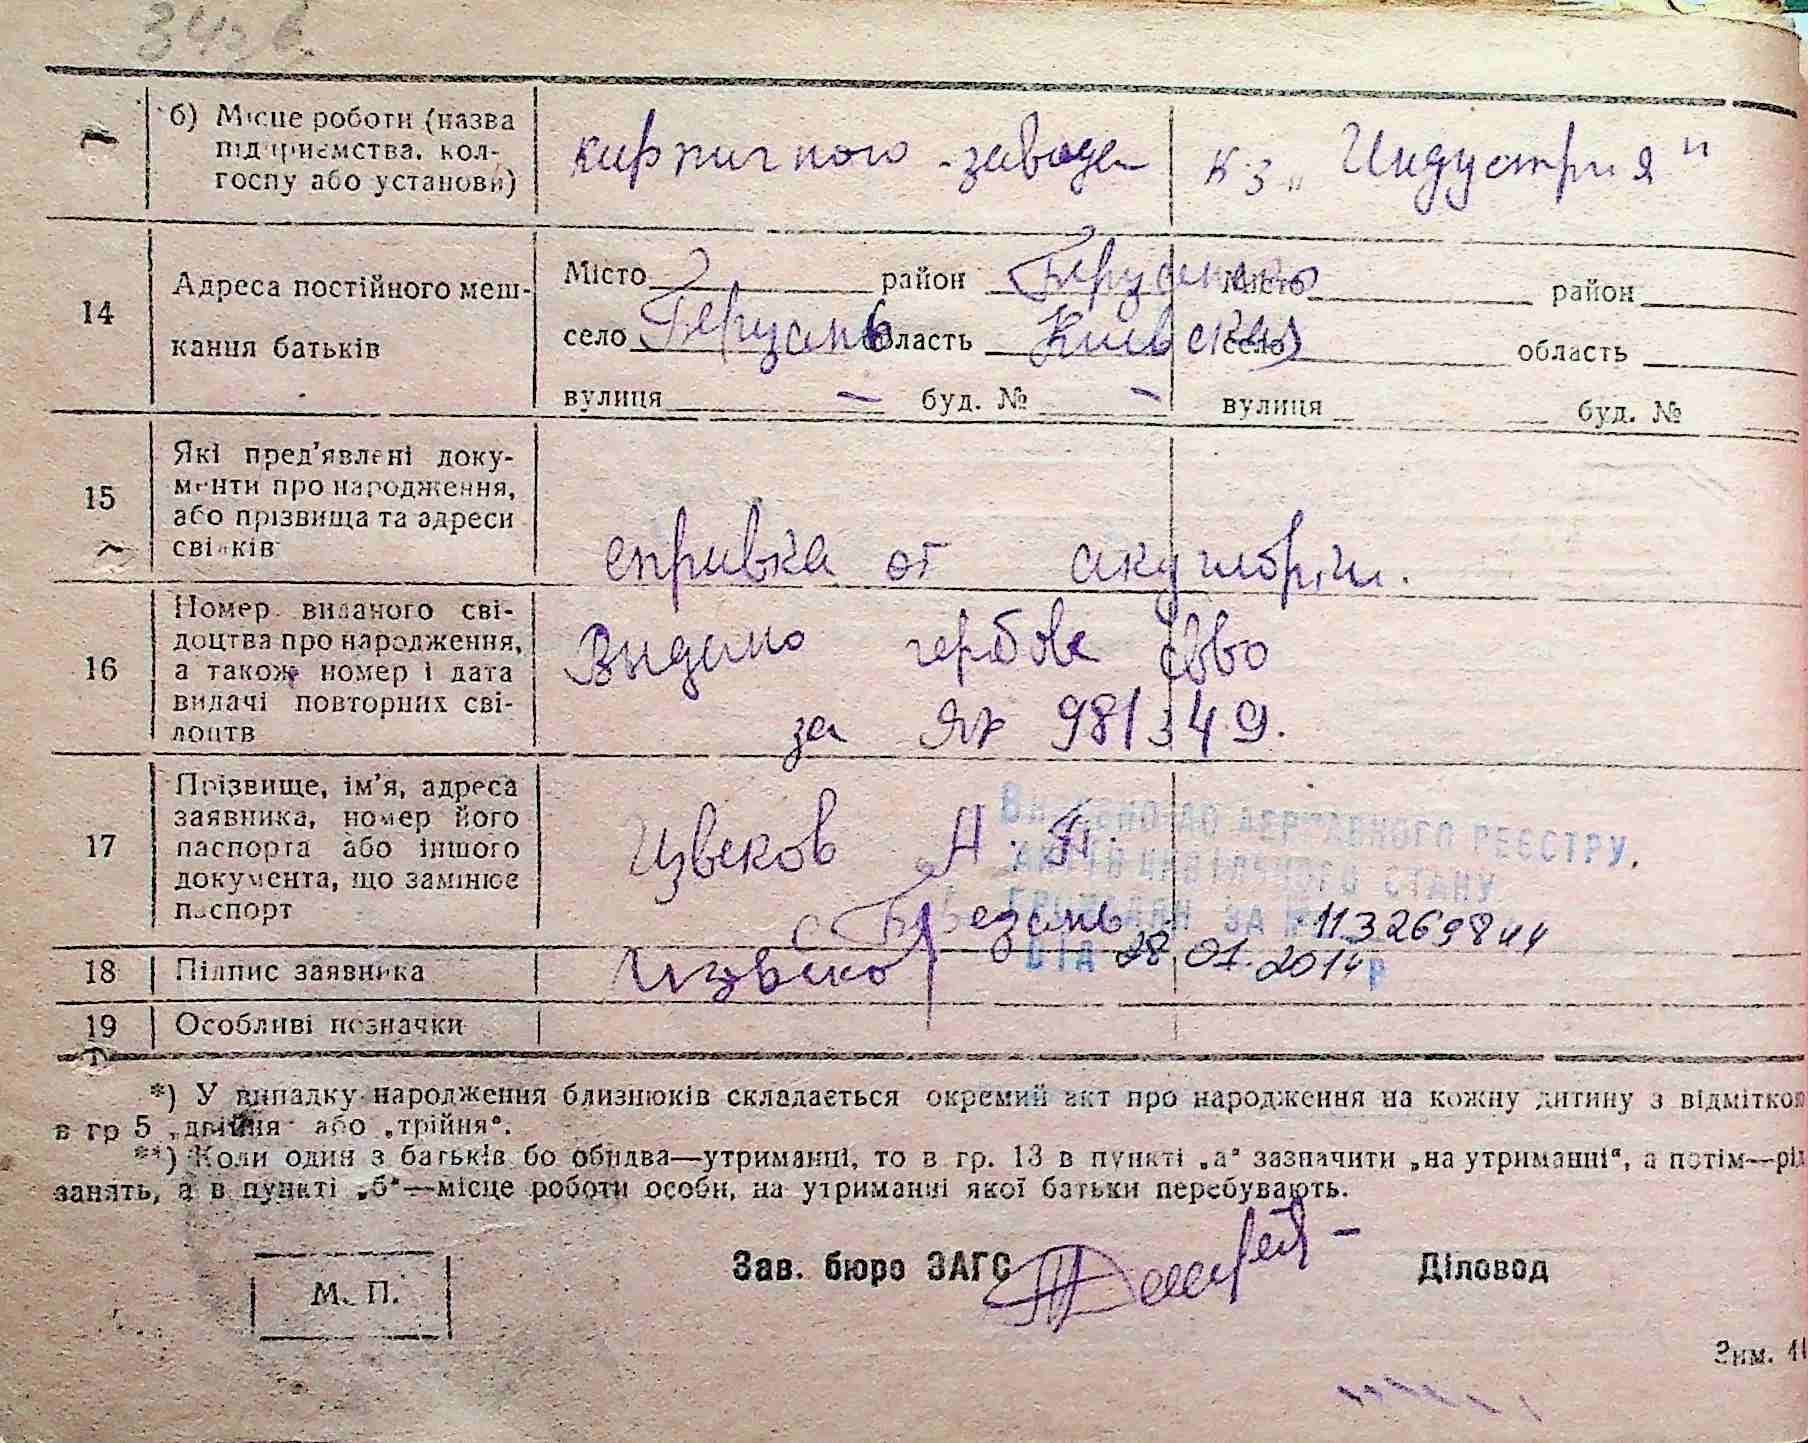 343 б.
б) Місце роботи (назва
підприємства, кол-
госпу або установи)
кирпичного завода
кз „Индустрия"
14
Адреса постійного меш-
кання батьків
Місто район Місто район
село область Киевская село область
вулиця — буд. № — вулиця буд. №
15
Які пред'явлені доку-
менти про народження,
або прізвища та адреси
свідків
справка от
16
Номер виданого сві-
доцтва про народження,
а також номер і дата
видачі повторних сві-
доцтв
Видано гербове св-во
за ЯК 981349.
17
Прізвище, ім'я, адреса
заявника, номер його
паспорта або іншого
документа, що замінює
паспорт
Извеков А. П.
с Березань
ВНЕСЕНО ДО ДЕРЖАВНОГО РЕЄСТРУ,
АКТІВ ЦИВІЛЬНОГО СТАНУ
ГРОМАДЯН ЗА №
ВІД 28.01.2014 р
18
Підпис заявника
Извеков
19
Особливі позначки
*) У випадку народження близнюків складається окремий акт про народження на кожну дитину з відміткою
в гр 5 „двійня" або „трійня".
**) Коли один з батьків бо обидва—утриманці, то в гр. 13 в пункті „а" зазначити „на утриманні", а потім—рід
занять, а в пункті „б"—місце роботи особи, на утриманні якої батьки перебувають.
М. П.
Зав. бюро ЗАГС
Діловод
Зим.